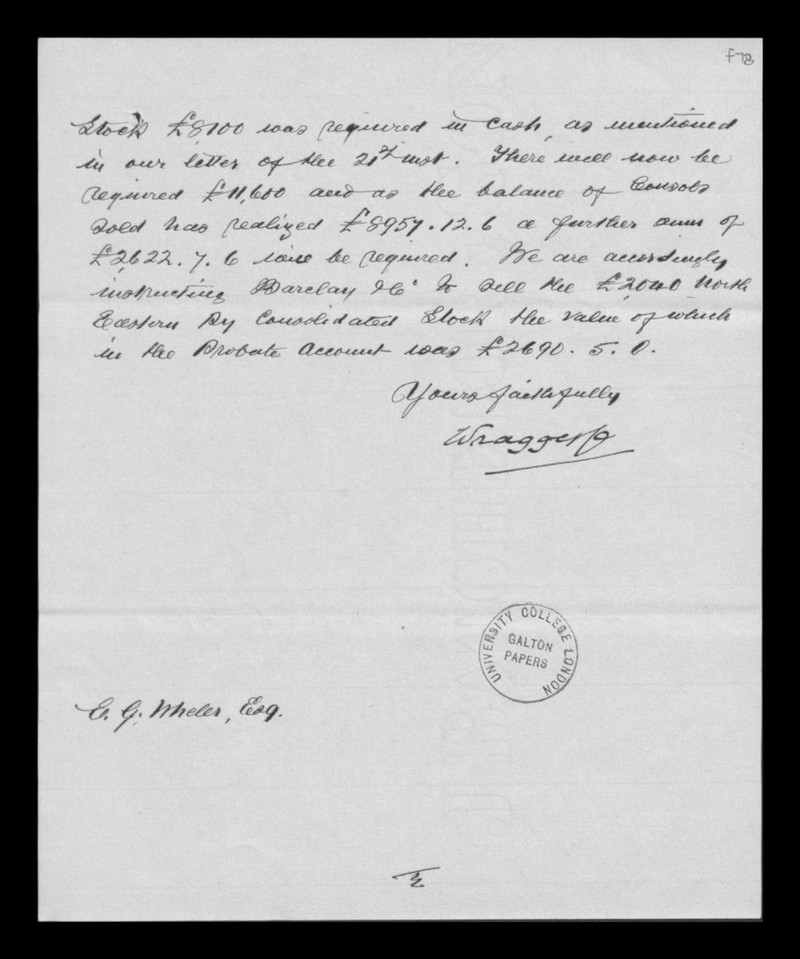 f78
Stock £8100 was required in cash, as mentioned
in our letter of the 21st inst. There will now be
required £11,600 and as the balance of Consols
sold has realized £8957.12.6 a further sum of
£2622.7.6 will be required. We are accordingly
instructing Barclay & Co to sell the £2040 North
Eastern Ry Consolidated Stock the value of which
in the Probate Account was £2690.5.0.
Yours faithfully
Wragge & Co
UNIVERSITY COLLEGE LONDON
GALTON
PAPERS
E. G. Wheler, Esq.